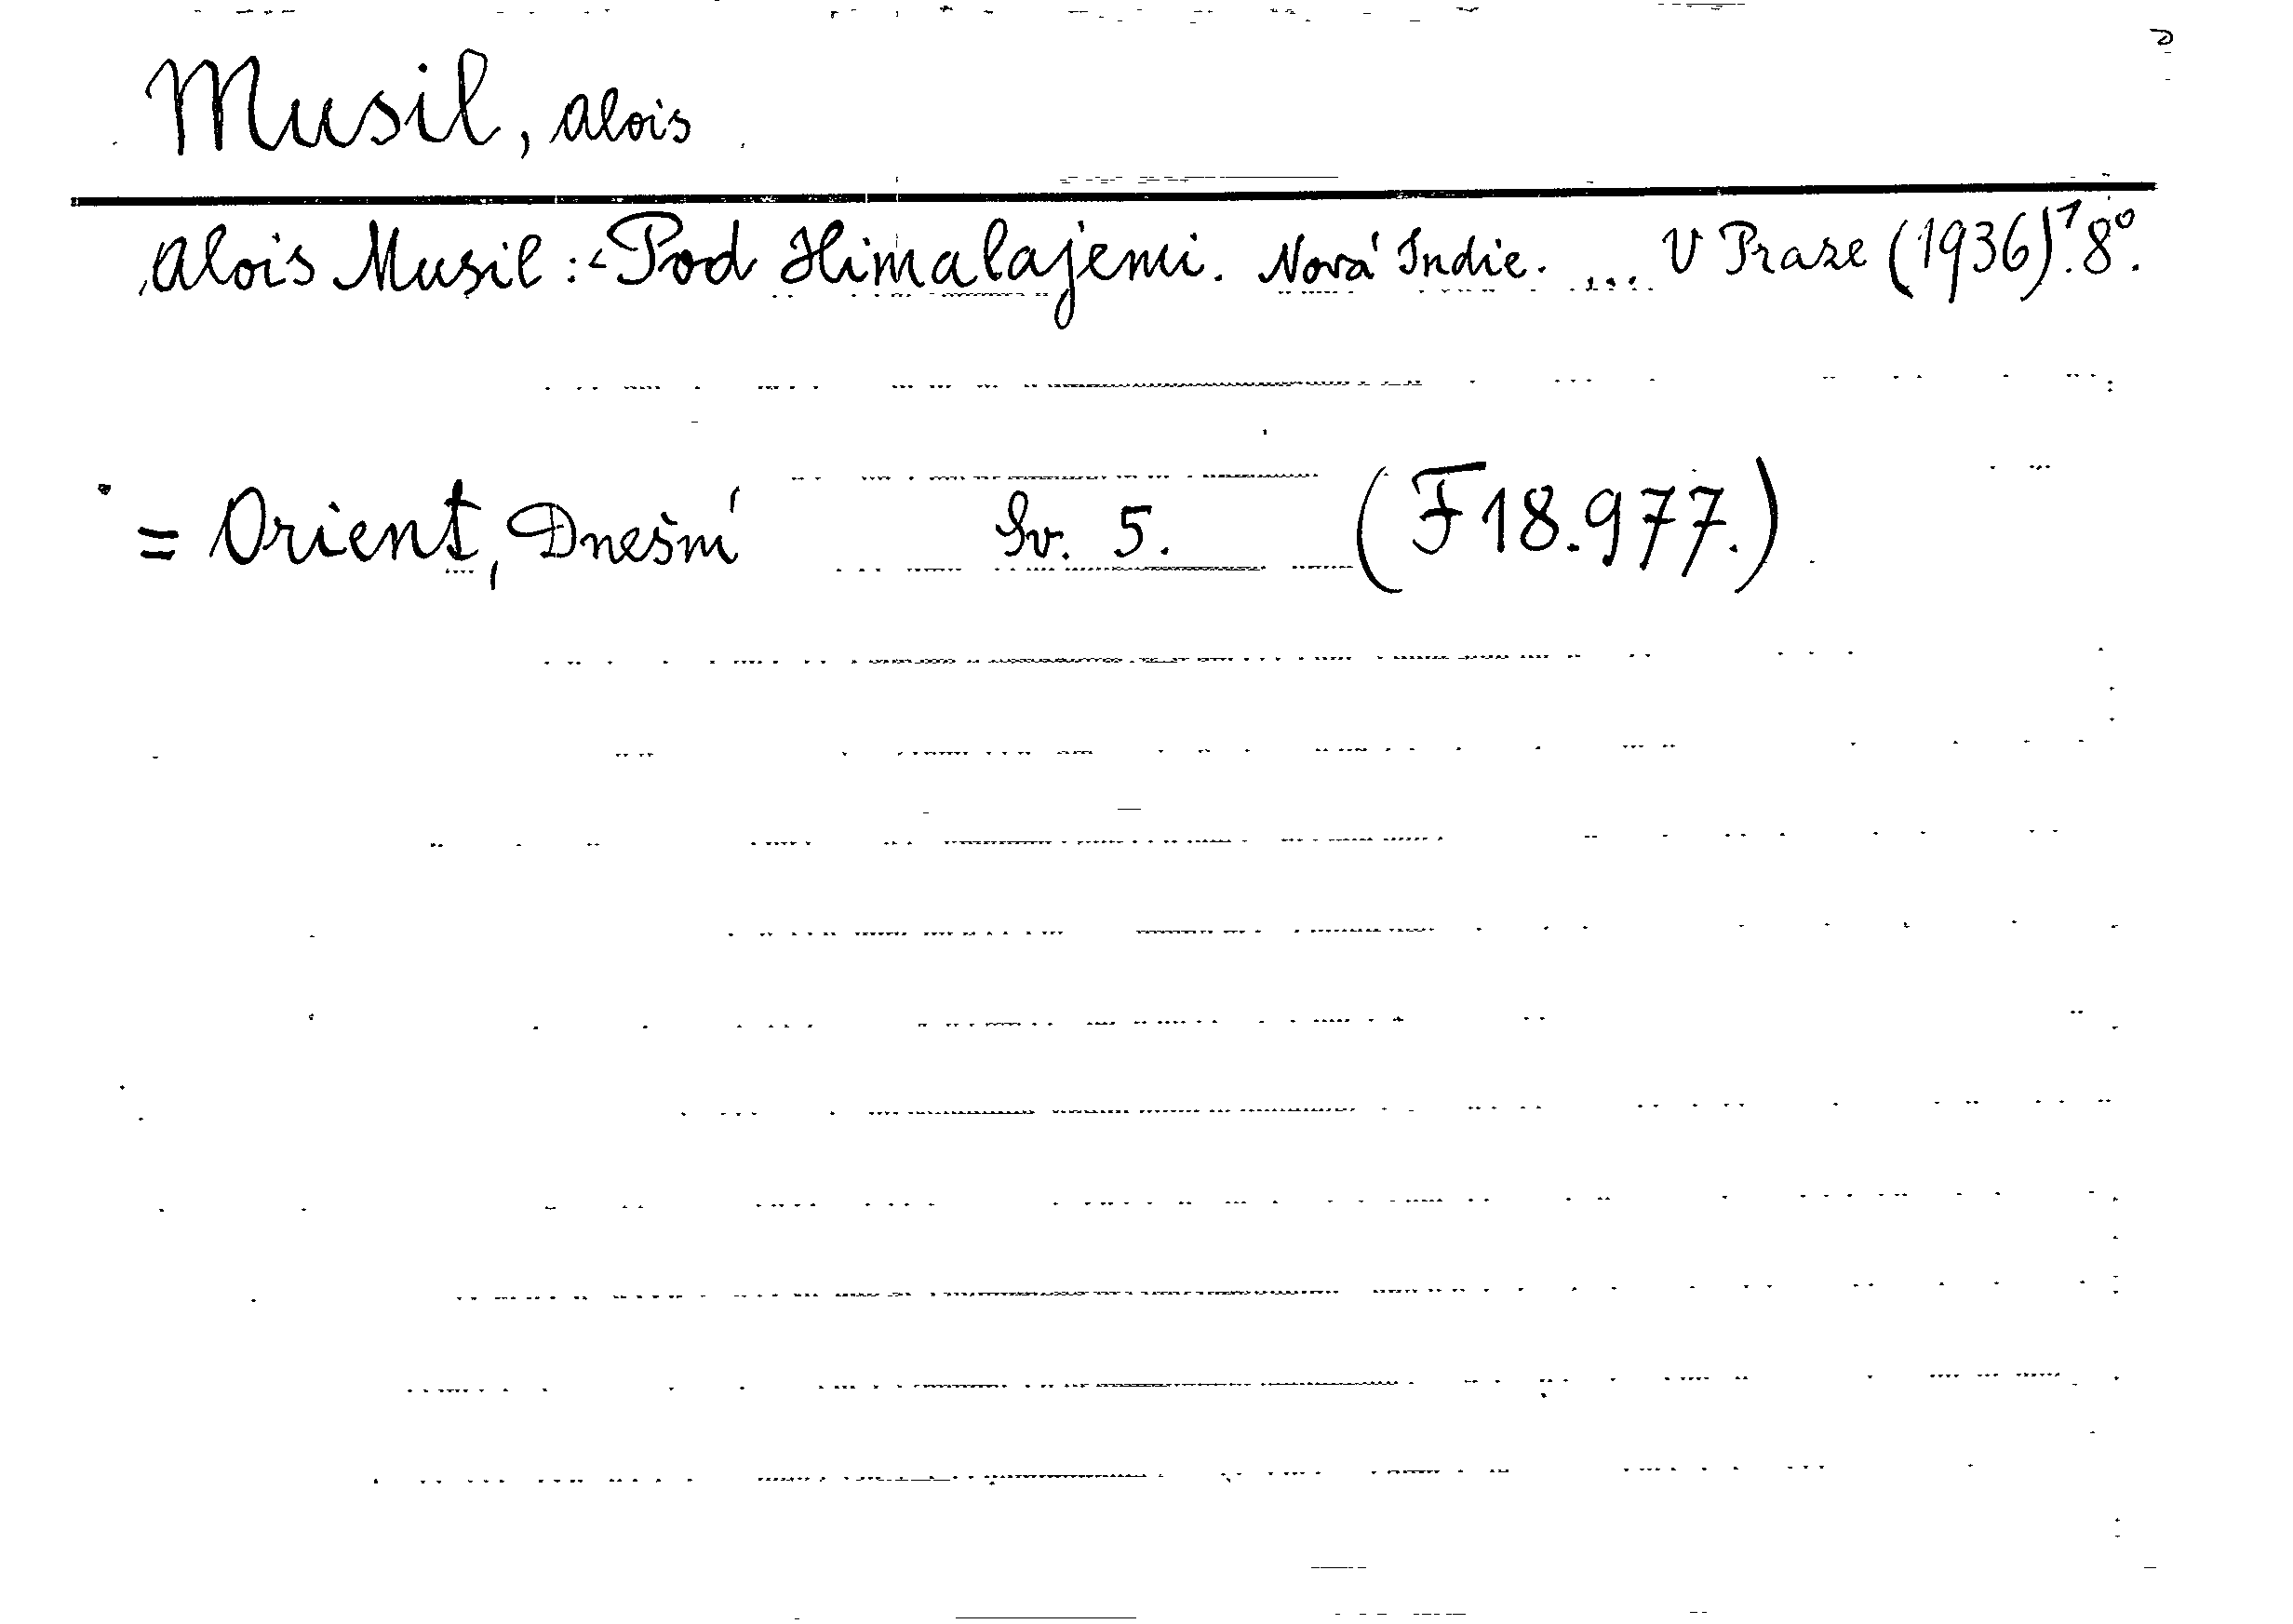 Musil, Alois
Alois Musil: Pod Himalajemi. Nová Indie. ... V Praze (1936)¹. 8°.
= Orient, Dnešní Sv. 5. (F 18.977.)